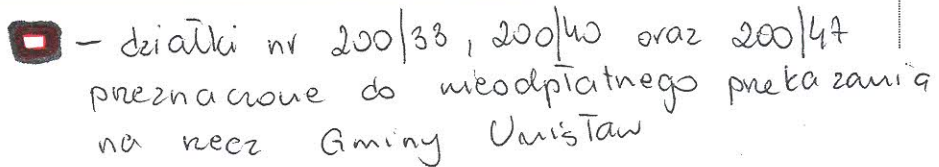 – działki nr 200/33, 200/40 oraz 200/47
przeznaczone do nieodpłatnego przekazania
na rzecz Gminy Unisław